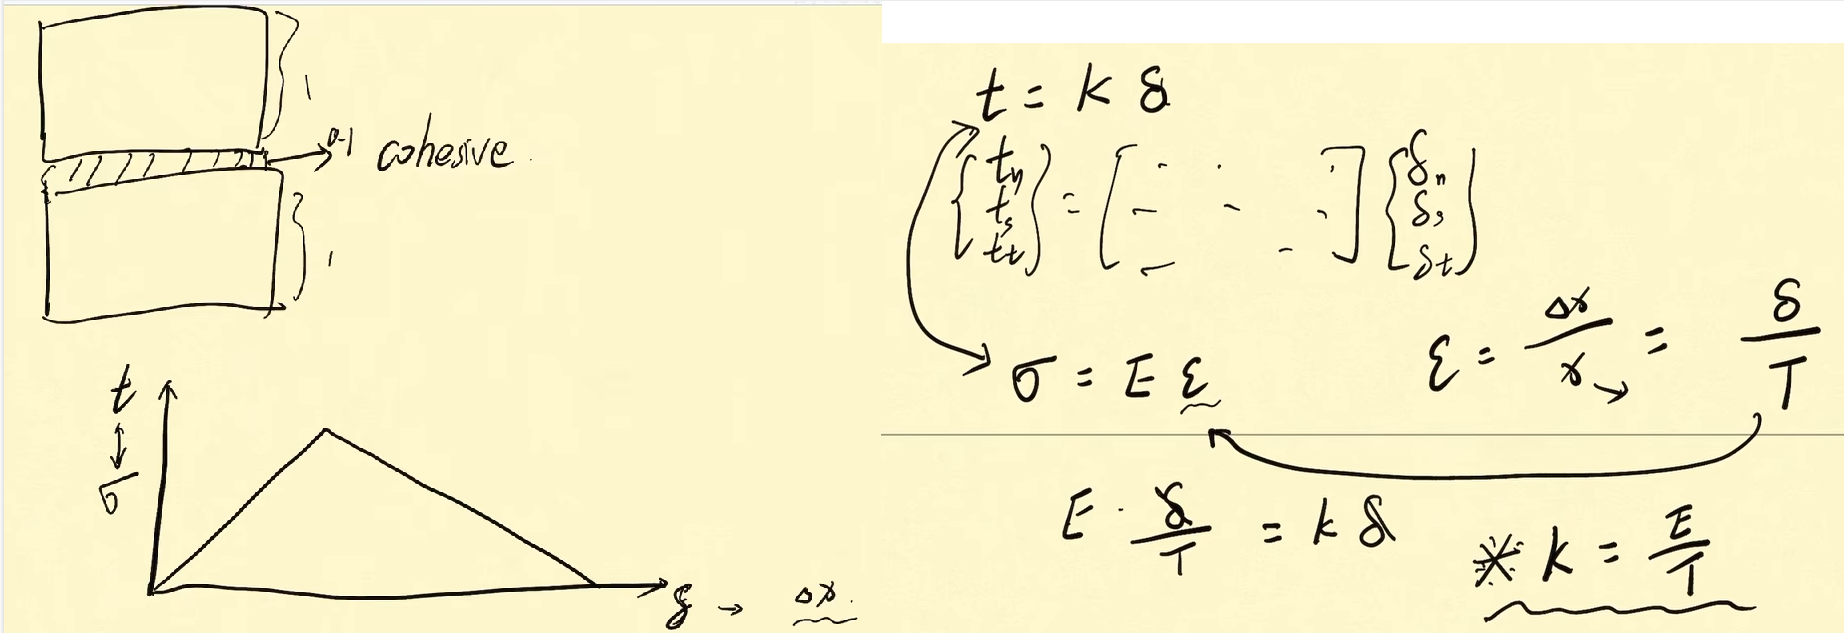 1
0.1 cohesive
1
t
↕
σ
δ → Δx
t = k δ
{tn ts tt} = [ ] {δn δs δt}
σ = E ε
ε = Δx / x = δ / T
E · δ / T = k δ
* k = E / T